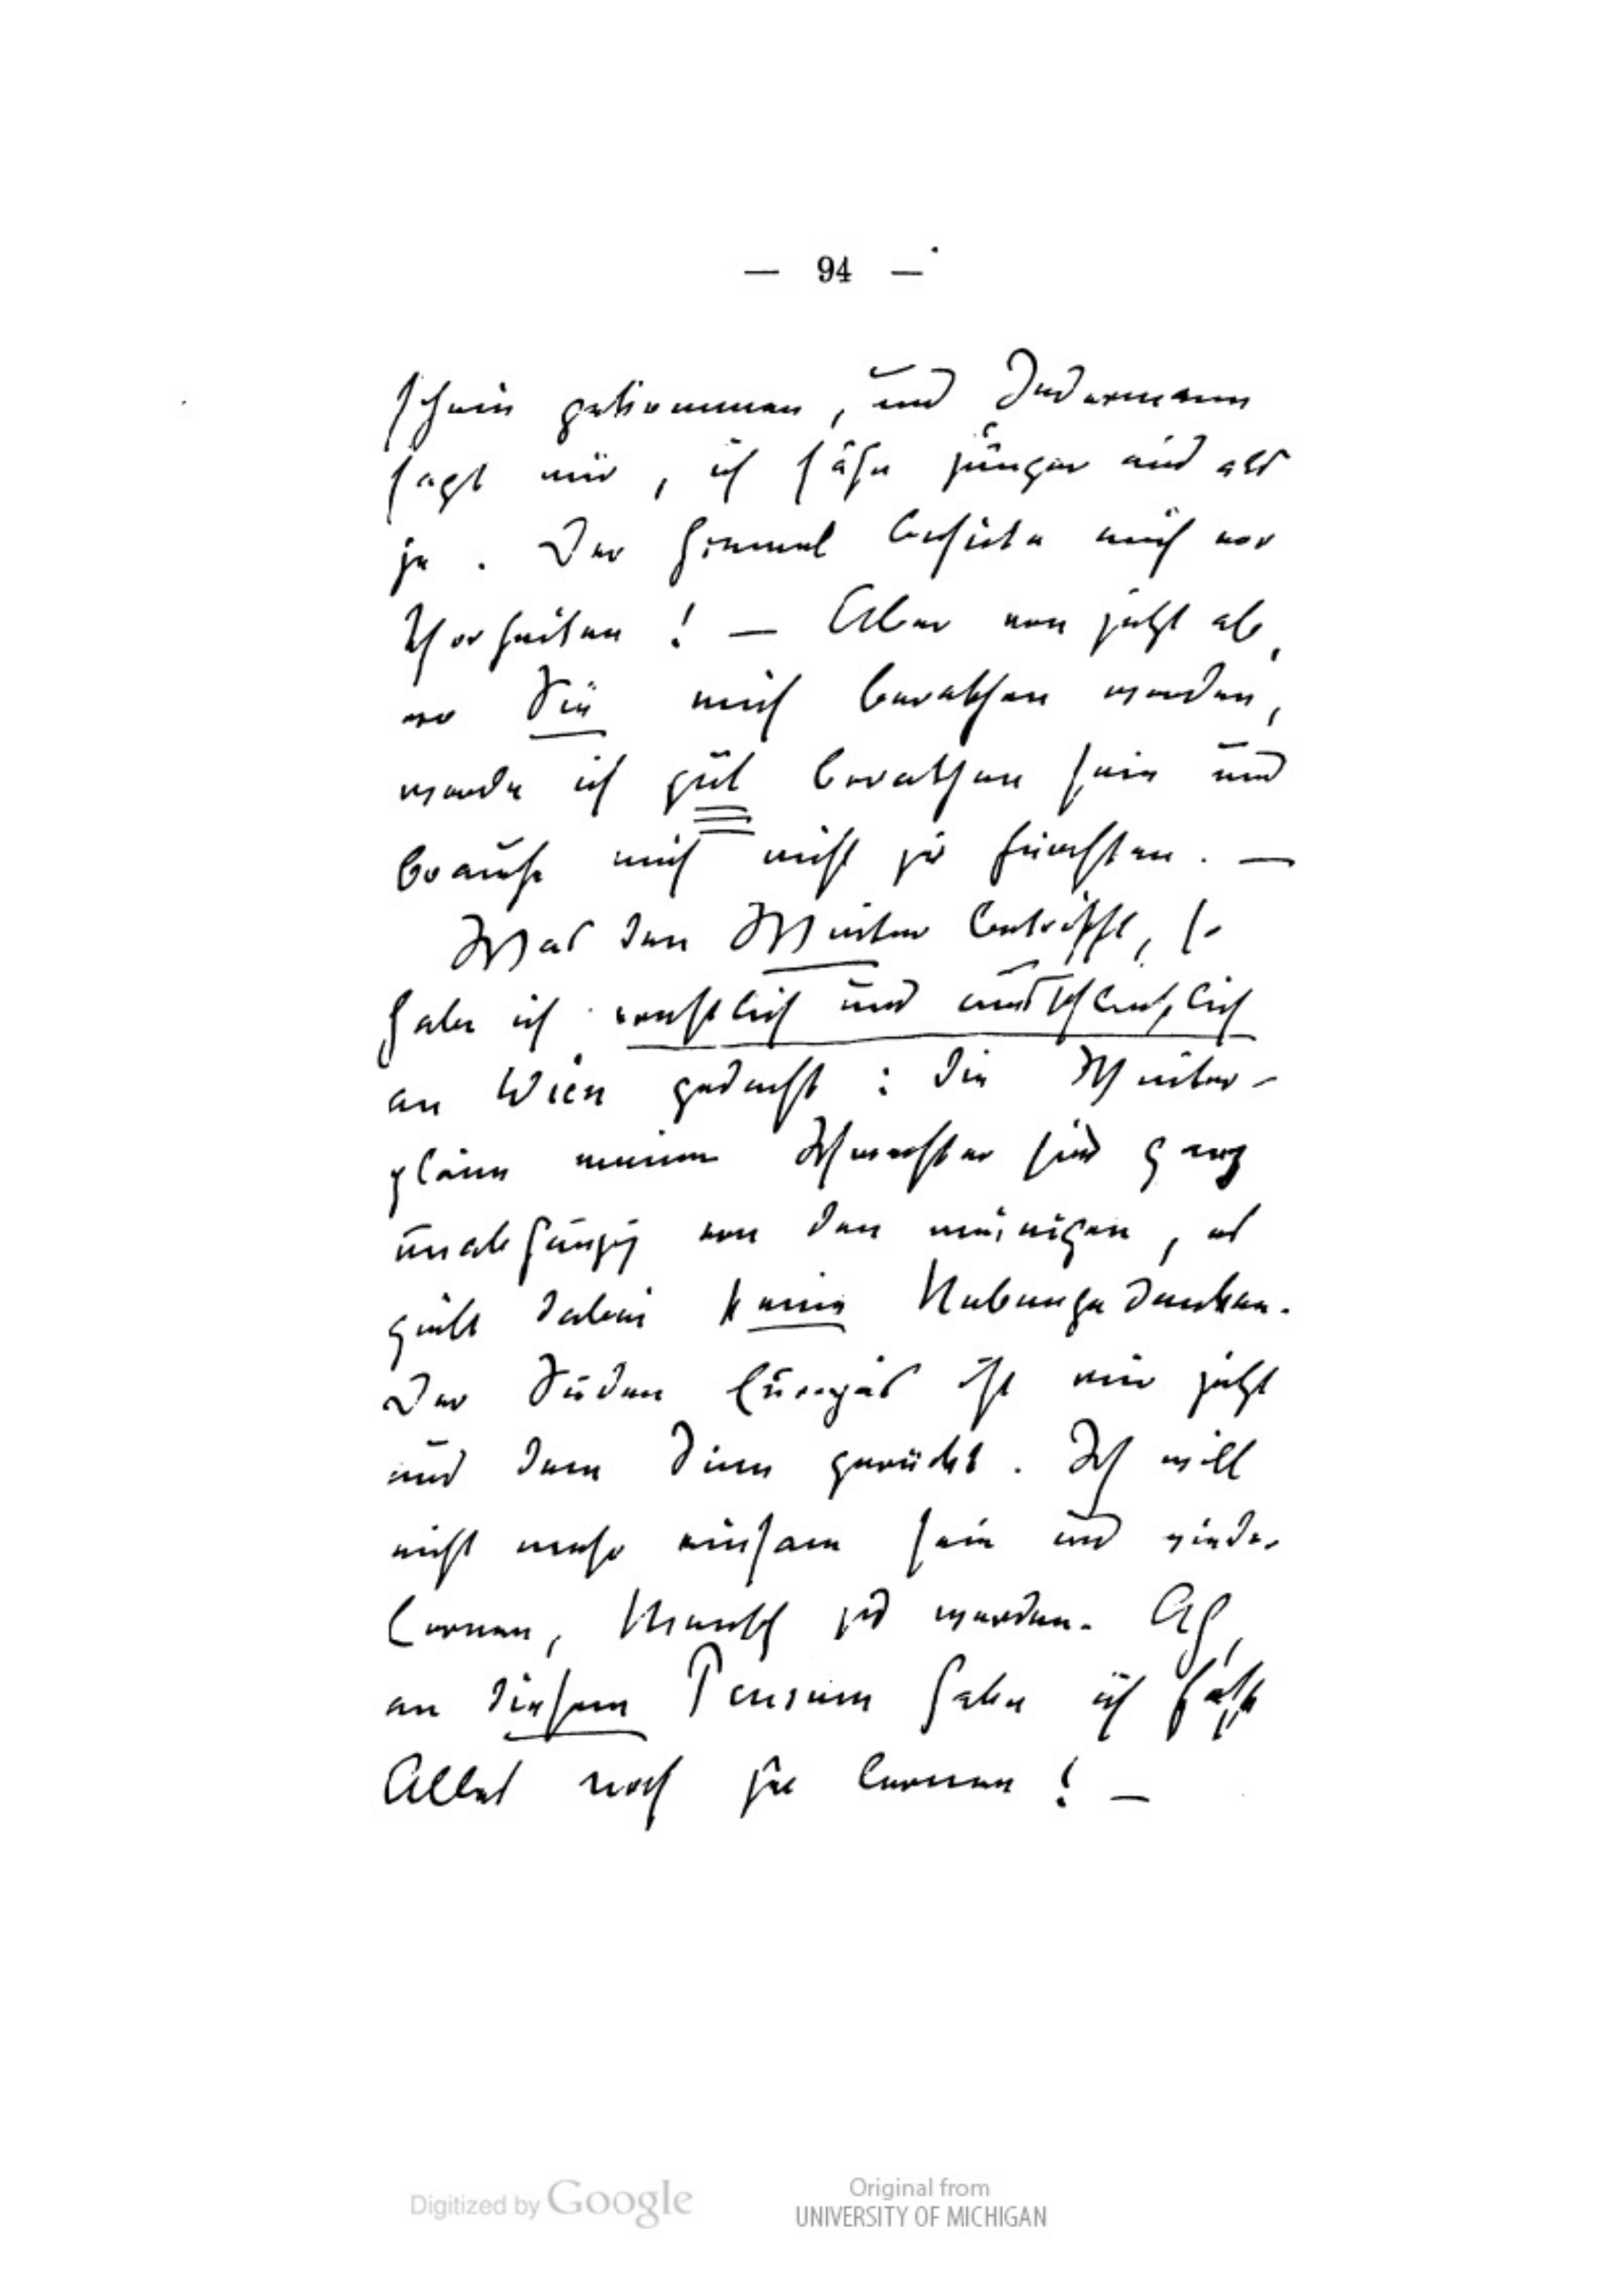 — 94 —
schein gekommen, und Jedermann
sagt mir, ich sähe jünger aus als
je. Der Himmel behüte mich vor
Thorheiten! — Aber von jetzt ab,
wo Sie mich berathen werden,
werde ich gut berathen sein und
brauche mich nicht zu fürchten. —
Was den Winter betrifft, so
habe ich ernstlich und ausschließlich
an Wien gedacht: die Winter-
pläne meiner Schwester sind ganz
unabhängig von den meinigen, es
giebt dabei keine Nebengedanken.
Der Süden Europas ist mir jetzt
aus dem Sinn gerückt. Ich will
nicht mehr einsam sein und wieder
lernen, Mensch zu werden. Ah,
an diesem Pensum habe ich fast
Alles noch zu lernen! —
Digitized by Google
Original from
UNIVERSITY OF MICHIGAN